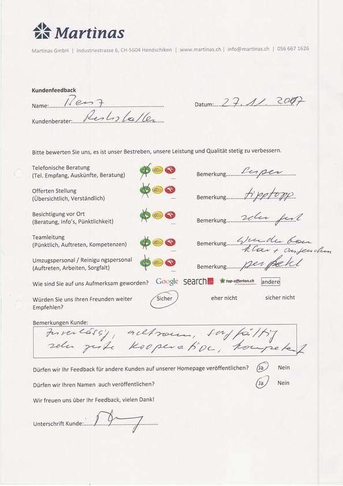 Martinas
Martinas GmbH | Industriestrasse 6, CH-5604 Hendschiken | www.martinas.ch | info@martinas.ch | 056 667 1626
Kundenfeedback
Name: Datum: 27.11.2017
Kundenberater:
Bitte bewerten Sie uns, es ist unser Bestreben, unsere Leistung und Qualität stetig zu verbessern.
Telefonische Beratung
(Tel. Empfang, Auskünfte, Beratung) Bemerkung super
Offerten Stellung
(Übersichtlich, Verständlich) Bemerkung tipptopp
Besichtigung vor Ort
(Beratung, Info's, Pünktlichkeit) Bemerkung sehr gut
Teamleitung
(Pünktlich, Auftreten, Kompetenzen) Bemerkung wunderbar
klar +
Umzugspersonal / Reinigungspersonal
(Auftreten, Arbeiten, Sorgfalt) Bemerkung perfekt
Wie sind Sie auf uns Aufmerksam geworden? Google search top-offerten.ch andere
Würden Sie uns Ihren Freunden weiter Empfehlen? Sicher eher nicht sicher nicht
Bemerkungen Kunde:
zuverlässig, achtsam, sorgfältig
sehr gute Kooperation, kompetent
Dürfen wir Ihr Feedback für andere Kunden auf unserer Homepage veröffentlichen? Ja Nein
Dürfen wir Ihren Namen auch veröffentlichen? Ja Nein
Wir freuen uns über Ihr Feedback, vielen Dank!
Unterschrift Kunde: